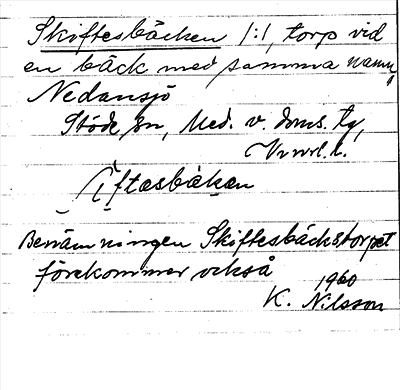 Skiftesbäcken 1:1, torp vid
en bäck med samma namn,
Nedansjö
Stöde sn, Med. v. doms. tg,
Vnrl. l.
Benämningen Skiftesbäckstorpet
förekommer också
1960
K. Nilsson